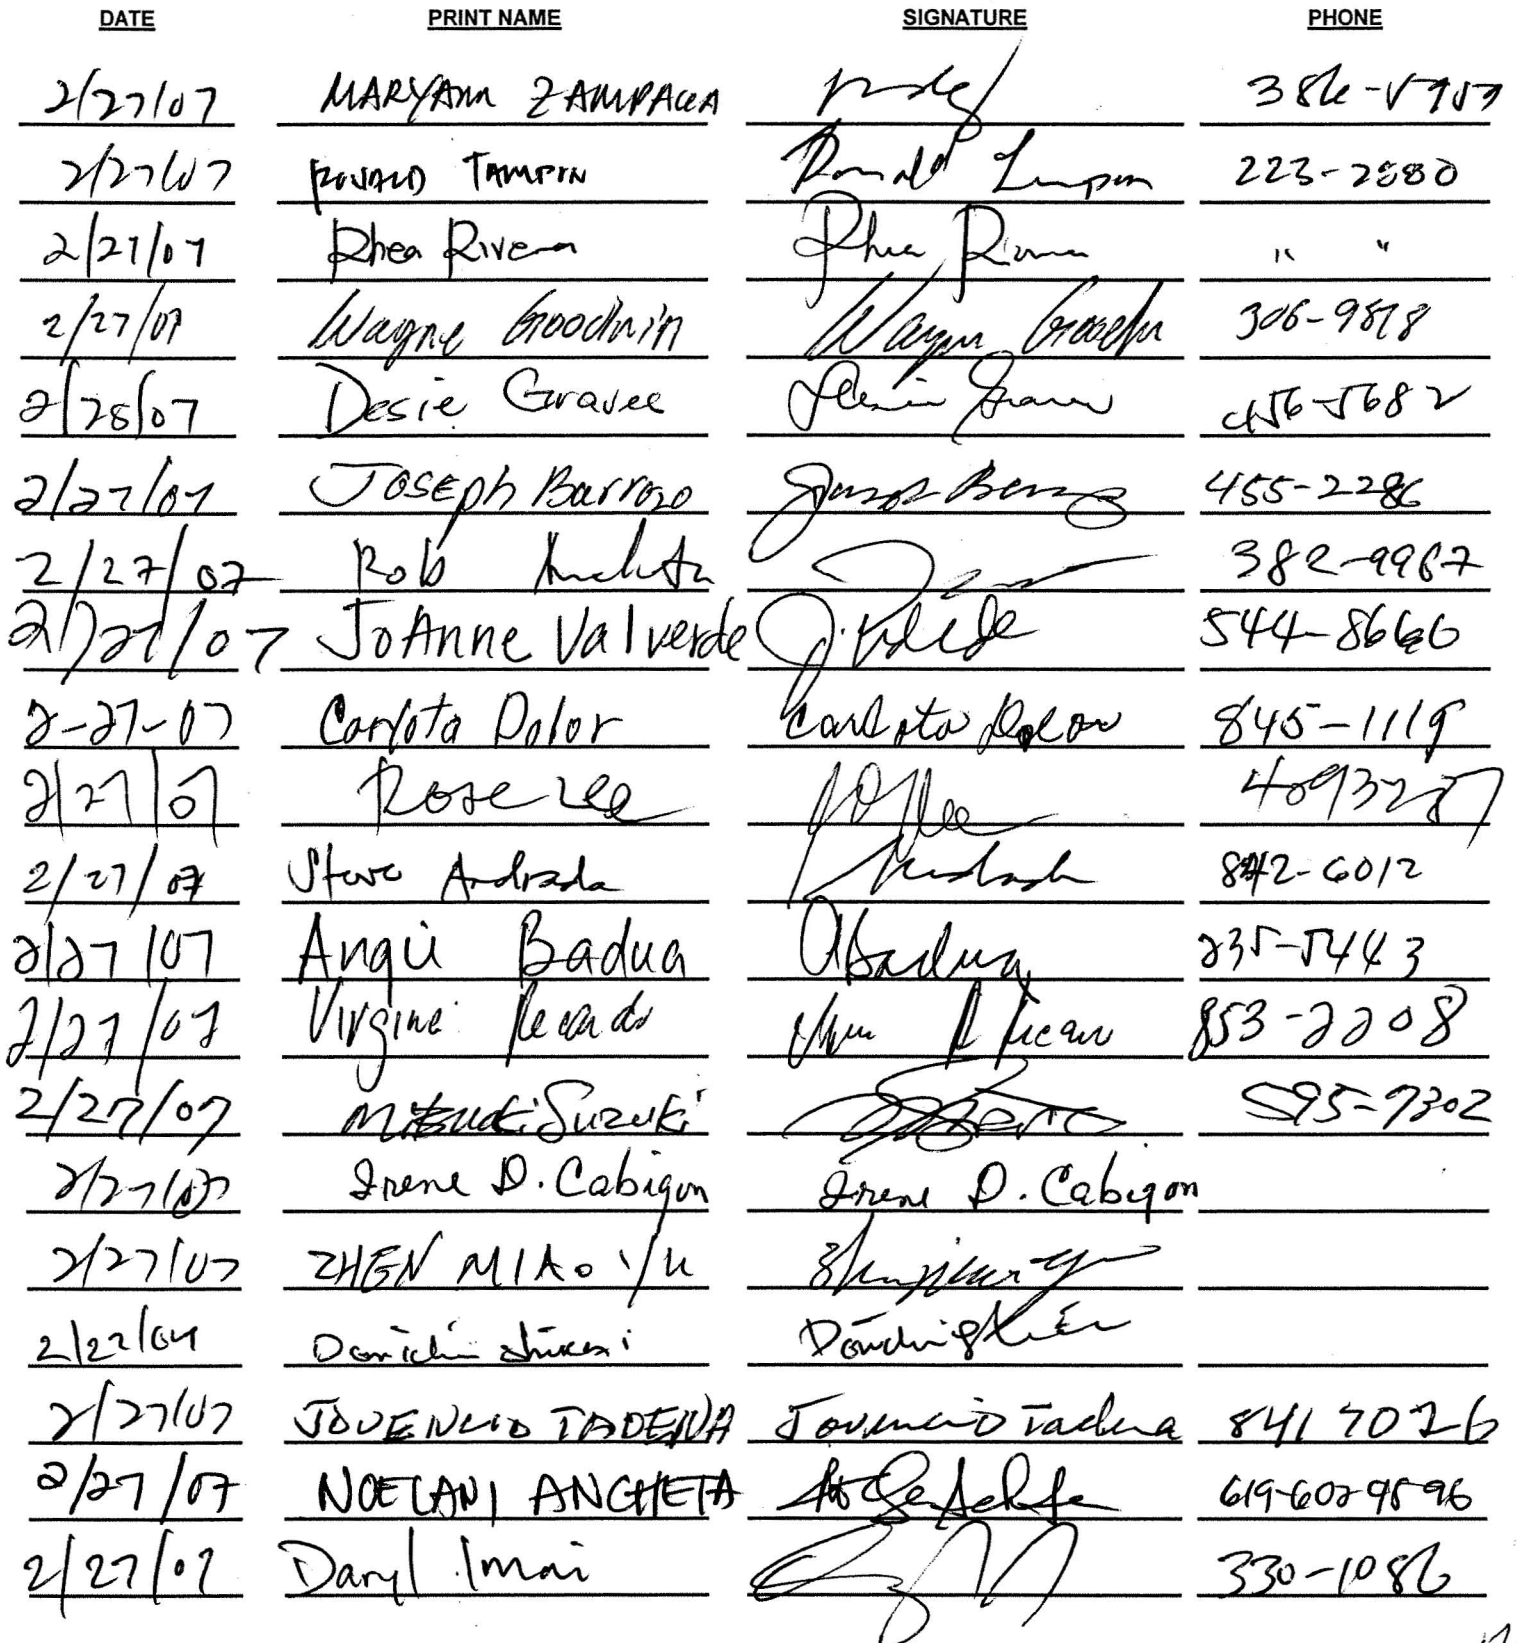 DATE PRINT NAME SIGNATURE PHONE
2/27/07 MARYANN
2/27/07 RONALD Ronald 223-2880
2/27/07 Rhea Rivera Rhea Rivera " "
2/27/07 Wayne Goodwin Wayne Goodwin 306-9878
2/28/07 Desie 456-5682
2/27/07 Joseph Barrozo 455-2286
2/27/07 Rob 382-9967
2/27/07 JoAnne Valverde J. 544-8666
2-27-07 Carlota Dolor Carlota Dolor 845-1119
2/27/07 Rose Lee
2/27/07 Steve Andrada 842-6012
2/27/07 Badua ABadua 235-5443
2/27/07 853-2208
2/27/07 Mitsuki Suzuki 595-7302
2/27/07 Irene D. Cabigon Irene D. Cabigon
2/27/07 ZHEN MIAO YU
2/27/07 JOVENCIO TADENA Jovencio Tadena 841 7026
2/27/07 NOELANI ANCHETA 619-602-9596
2/27/07 Daryl Imai 330-1086